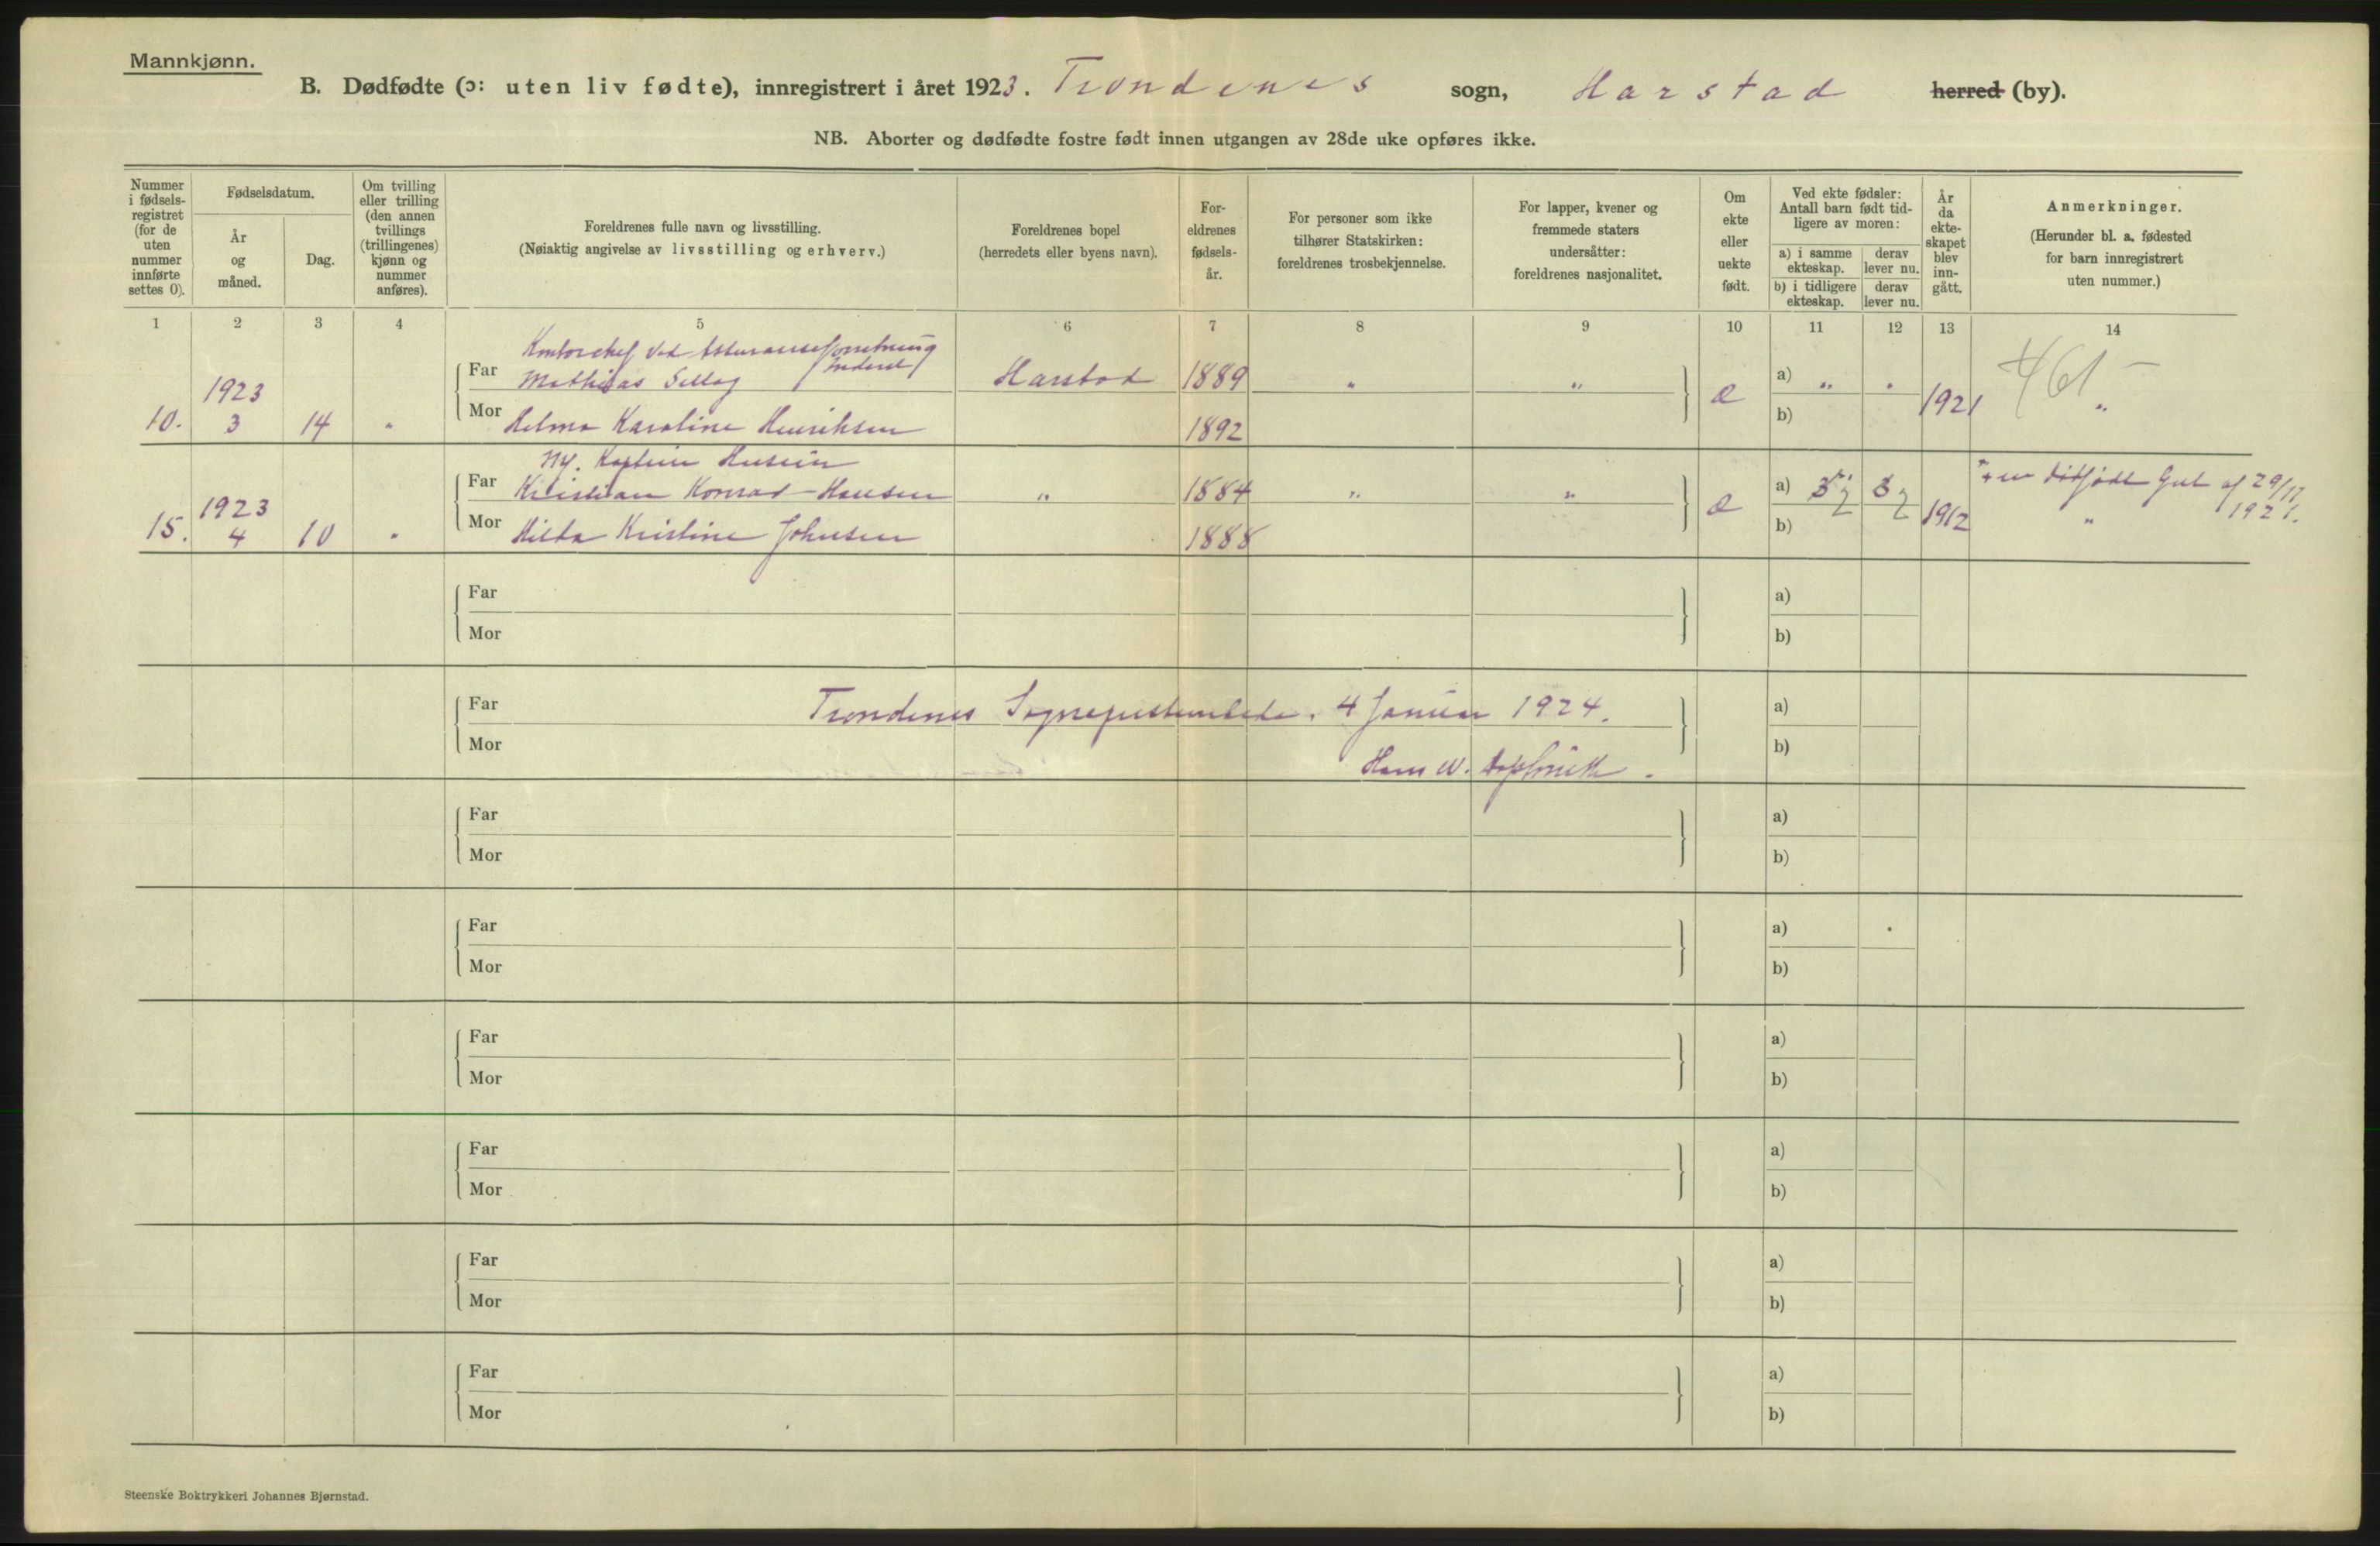 Mannkjønn.
B. Dødfødte (ɔ: uten liv fødte), innregistrert i året 1923. Trondenes sogn, Harstad herred (by).
NB. Aborter og dødfødte fostre født innen utgangen av 28de uke opføres ikke.
Nummer i fødsels-registret (for de uten nummer innførte settes 0).
Fødselsdatum.
År og måned.
Dag.
Om tvilling eller trilling (den annen tvillings (trillingenes) kjønn og nummer anføres).
Foreldrenes fulle navn og livsstilling.
(Nøiaktig angivelse av livsstilling og erhverv.)
Foreldrenes bopel
(herredets eller byens navn).
For-eldrenes fødsels-år.
For personer som ikke tilhører Statskirken: foreldrenes trosbekjennelse.
For lapper, kvener og fremmede staters undersåtter: foreldrenes nasjonalitet.
Om ekte eller uekte født.
Ved ekte fødsler: Antall barn født tid-ligere av moren:
a) i samme ekteskap.
derav lever nu.
b) i tidligere ekteskap.
derav lever nu.
År da ekte-skapet blev inn-gått.
Anmerkninger.
(Herunder bl. a. fødested for barn innregistrert uten nummer.)
1 2 3 4 5 6 7 8 9 10 11 12 13 14
Kontorchef ved Assuranceforretning
10. 1923 3 14 " Far Mathias Harstad 1889 " " e a) " " 1921 "
Mor Helma Karoline Henriksen 1892 b)
461 –
15. 1923 4 10 " Far Kristian Konrad Hansen " 1884 " " e a) 1912
Mor Hilda Kristine Johnsen 1888 b)
+ en dødfødt Gut af 29/11 1921.
"
Far a)
Mor b)
Far Trondenes Sogneprestembede, 4 Januar 1924. a)
Mor Hans W. b)
Far a)
Mor b)
Far a)
Mor b)
Far a)
Mor b)
Far a)
Mor b)
Far a)
Mor b)
Far a)
Mor b)
Steenske Boktrykkeri Johannes Bjørnstad.